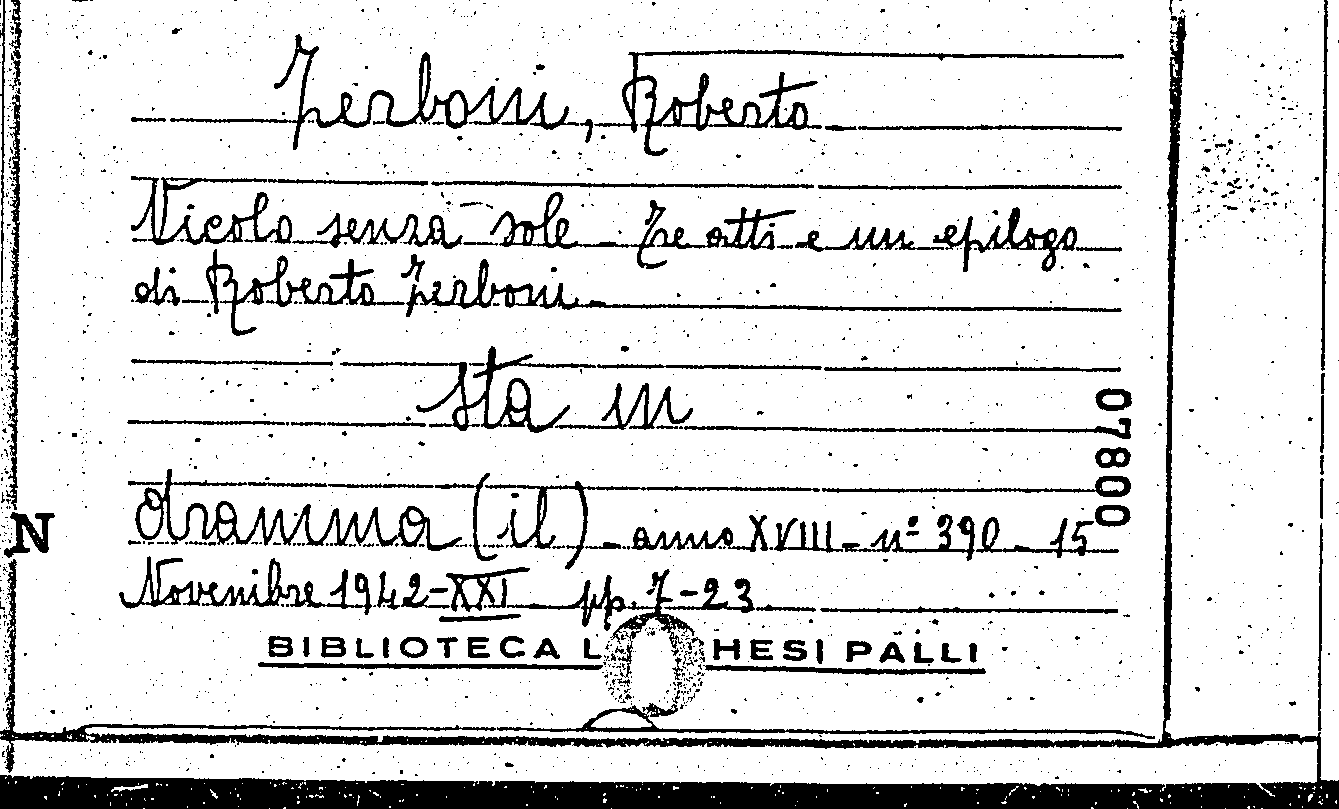 Zerboni, Roberto
Vicolo senza sole - Tre atti e un epilogo
di Roberto Zerboni.-
sta in
07800
N
dramma (il) - anno XVIII - nº 390 - 15
Novembre 1942-XXI pp. 7-23.
BIBLIOTECA L HESI PALLI